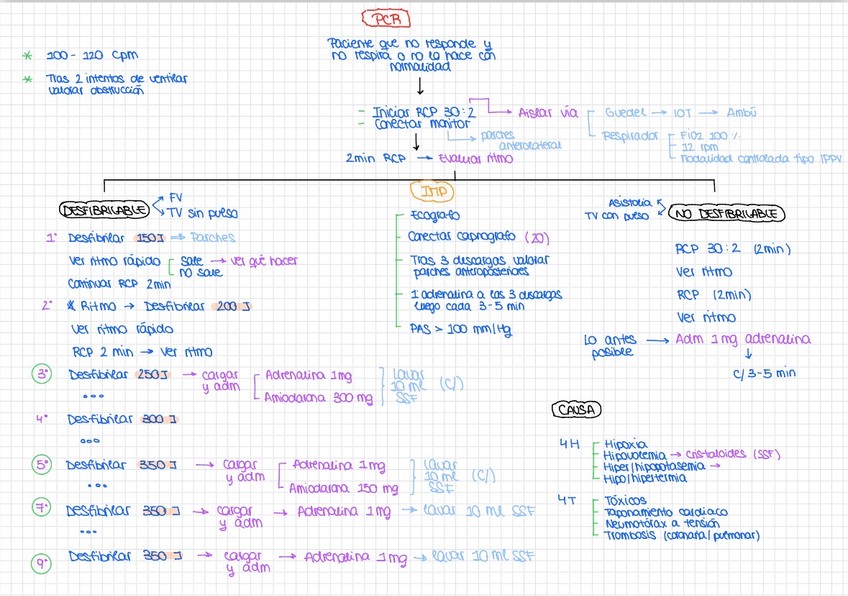 PCR
* 100 - 120 cpm
* Tras 2 intentos de ventilar
valorar obstrucción
Paciente que no responde y
no respira o no lo hace con
normalidad
- Iniciar RCP 30:2 → Aislar vía
- Conectar monitor
→ parches
anterolateral
Guedel → IOT → Ambú
Respirador
FiO2 100 %
12 rpm
Modalidad controlada tipo IPPV
2min RCP → Evaluar ritmo
DESFIBRILABLE
FV
TV sin pulso
1º Desfibrilar 150J ⇒ Parches
Ver ritmo rápido
sale → ver qué hacer
no sale
Continuar RCP 2min
2º Ritmo → Desfibrilar 200J
Ver ritmo rápido
RCP 2 min → Ver ritmo
3º Desfibrilar 250J → cargar
y adm
Adrenalina 1mg
Amiodarona 300 mg
lavar
10 ml (c/)
SSF
...
4º Desfibrilar 300 J
...
5º Desfibrilar 350J → cargar
y adm
Adrenalina 1mg
Amiodarona 150 mg
lavar
10 ml (c/)
SSF
...
7º Desfibrilar 350J → cargar
y adm
→ Adrenalina 1mg → lavar 10 ml SSF
...
9º Desfibrilar 350J → cargar
y adm
→ Adrenalina 1mg → lavar 10 ml SSF
IMP
Ecografo
Conectar capnografo (20)
Tras 3 descargas valorar
parches anteroposteriores
1 adrenalina a las 3 descargas
luego cada 3-5 min
PAS > 100 mm/Hg
Asistolia
TV con pulso
NO DESFIBRILABLE
RCP 30:2 (2min)
Ver ritmo
RCP (2min)
Ver ritmo
Lo antes
posible
→ Adm 1mg adrenalina
↓
c/ 3-5 min
CAUSA
4H
Hipoxia
Hipovolemia → cristaloides (SSF)
Hiper/hipopotasemia →
Hipo/hipertermia
4T
Tóxicos
Taponamiento cardiaco
Neumotórax a tensión
Trombosis (coronaria/pulmonar)